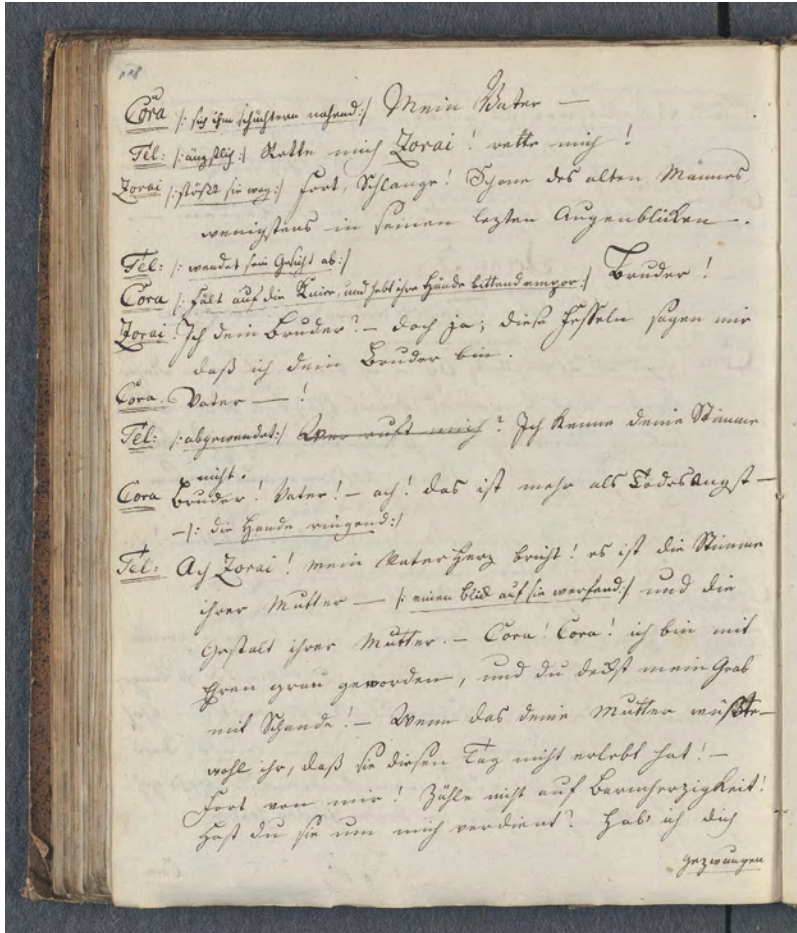 Cora /: sich ihm schüchtern nahend :/ Mein Vater —
Tel: /: ängstlich :/ Rette mich Zorai! rette mich!
Zorai /: stößt sie weg :/ Fort, Schlange! Schone des alten Mannes
wenigstens in seinen lezten Augenblicken —.
Tel: /: wendet sein Gesicht ab :/
Cora /: fält auf die Kniee, und hebt ihre Hände bittend empor :/ Bruder!
Zorai: Ich dein Bruder? — doch ja; diese Fesseln sagen mir
daß ich dein Bruder bin.
Cora. Vater — !
Tel: /: abgewendet :/ Wer ruft mich? Ich kenne deine Stimme
nicht.
Cora Bruder! Vater! — ach! das ist mehr als Todesangst —
— /: die Hände ringend :/
Tel: Ach Zorai! mein Vaterherz bricht! es ist die Stimme
ihrer Mutter — /: einen Blick auf sie werfend :/ und die
Gestalt ihrer Mutter. — Cora! Cora! ich bin mit
Ehren grau geworden, und du deckst mein Grab
mit Schande! — Wenn das deine Mutter wüßte —
wohl ihr, daß sie diesen Tag nicht erlebt hat! —
Fort von mir! Zähle nicht auf Barmherzigkeit!
Hast du sie um mich verdient? Hab' ich dich
gezwungen